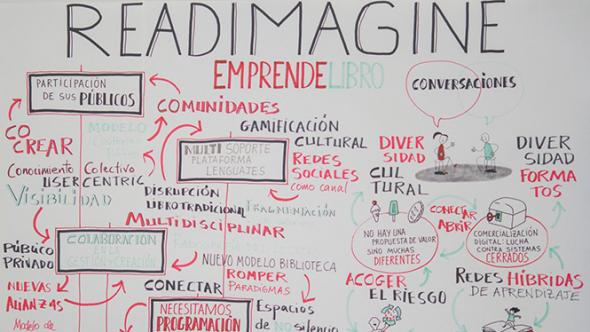 READIMAGINE
EMPRENDELIBRO
CONVERSACIONES
PARTICIPACIÓN
DE SUS PÚBLICOS
COMUNIDADES
CO
CREAR
MODELO
Conocimiento
Colectivo
USER
CENTRIC
VISIBILIDAD
GAMIFICACIÓN
MULTI SOPORTE
PLATAFORMA
LENGUAJES
CULTURAL
REDES
SOCIALES
como canal
DISRUPCIÓN
LIBRO TRADICIONAL
FRAGMENTACIÓN
MULTIDISCIPLINAR
DIVER
SIDAD
CUL
TURAL
DIVER
SIDAD
FORMA
TOS
CONECTAR
ABRIR
NO HAY UNA
PROPUESTA DE VALOR
SINO MUCHAS
DIFERENTES
COMERCIALIZACIÓN
DIGITAL: LUCHA
CONTRA SISTEMAS
CERRADOS
PÚBLICO
PRIVADO
COLABORACIÓN
GESTIÓN + CREACIÓN
NUEVO MODELO BIBLIOTECA
ROMPER
PARADIGMAS
NUEVAS
ALIANZAS
Modelo de
CONECTAR
NECESITAMOS
PROGRAMACIÓN
Espacios
de NO silencio
ACOGER
EL RIESGO
REDES HÍBRIDAS
DE APRENDIZAJE